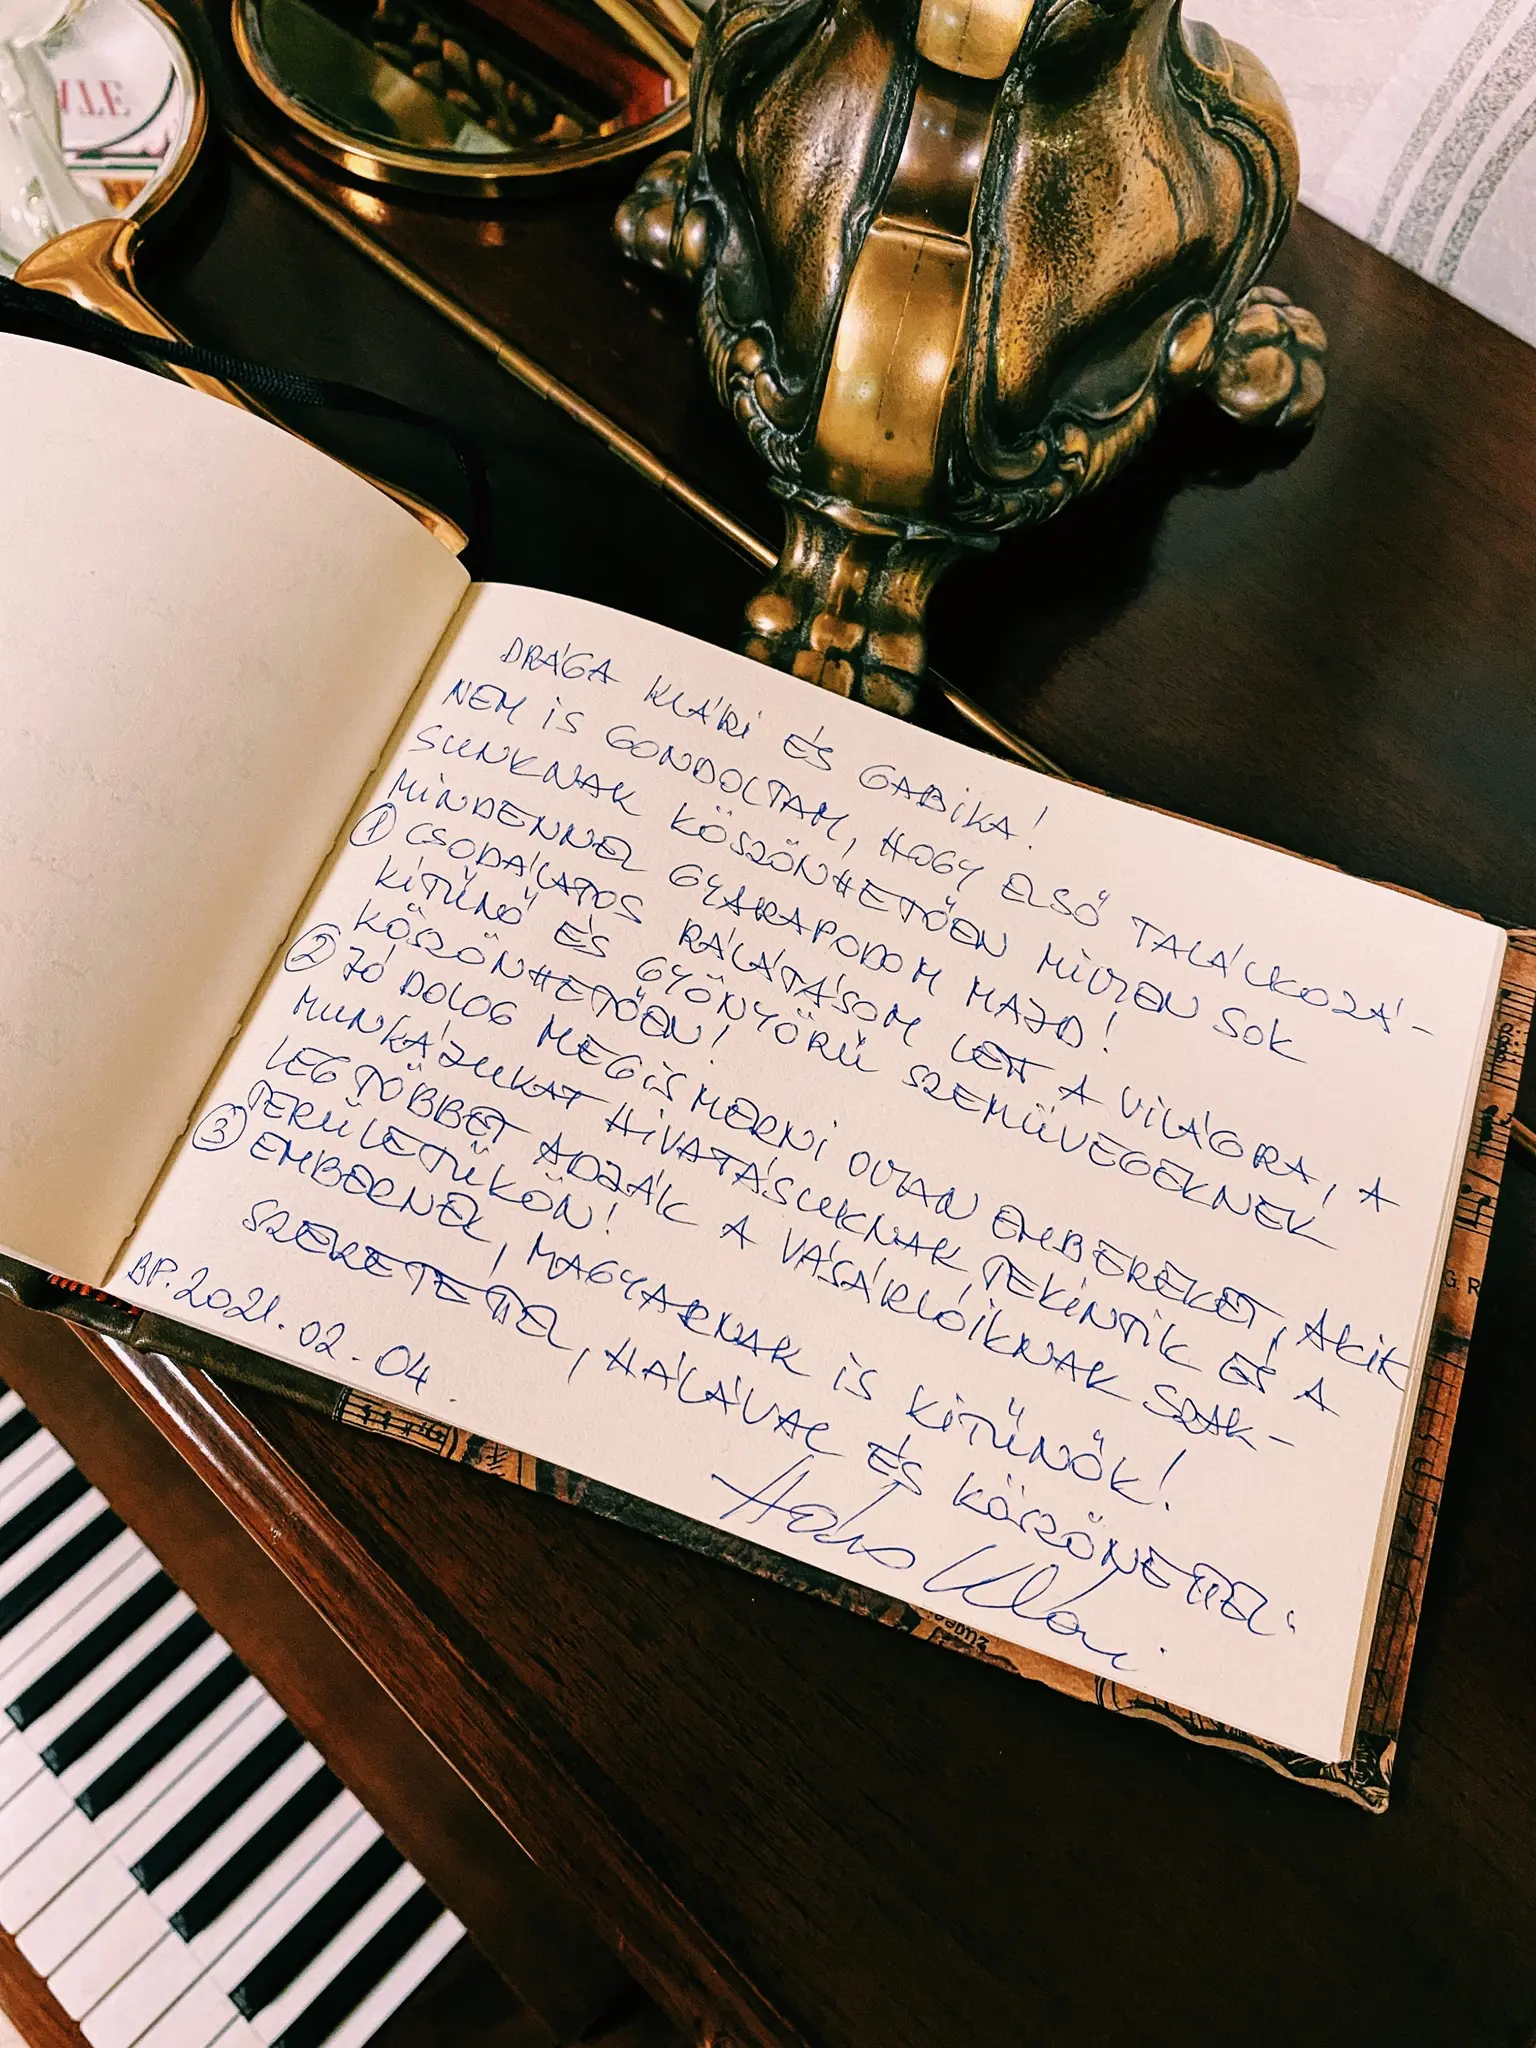 DRÁGA KLÁRI ÉS GABIKA!
NEM IS GONDOLTAM, HOGY ELSŐ TALÁLKOZÁ-
SUNKNAK KÖSZÖNHETŐEN MILYEN SOK
MINDENNEL GYARAPODOM MAJD!
① CSODÁLATOS RÁLÁTÁSOM LETT A VILÁGRA, A
KITŰNŐ ÉS GYÖNYÖRŰ SZEMÜVEGEKNEK
KÖSZÖNHETŐEN!
② JÓ DOLOG MEGISMERNI OLYAN EMBEREKET, AKIK
MUNKÁJUKAT HIVATÁSUKNAK TEKINTIK ÉS A
LEGTÖBBET ADJÁK A VÁSÁRLÓIKNAK SZAK-
TERÜLETÜKÖN!
③ EMBERNEK, MAGYARNAK IS KITŰNŐK!
SZERETETTEL, HÁLÁVAL ÉS KÖSZÖNETTEL:
BP. 2021. 02. 04.